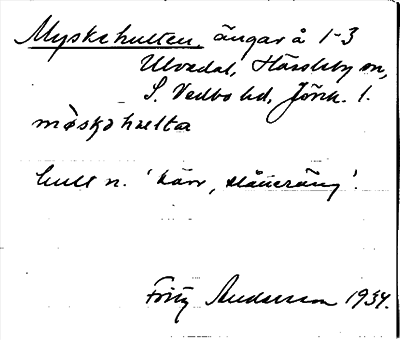 Myskehulten, ängar å 1-3
Ulvedal, Hässleby sn,
S. Vedbo hd, Jönk. l.
mỳskəhulta
hult n. 'kärr, slåtteräng'.
Fritz Andersson 1934.